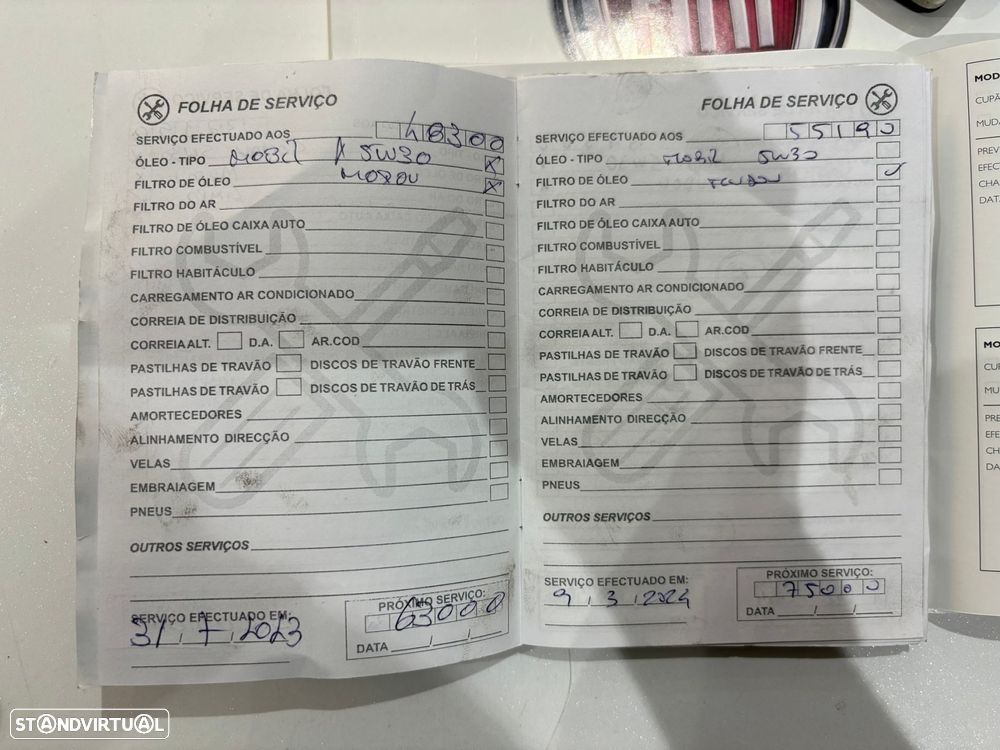 FOLHA DE SERVIÇO
SERVIÇO EFECTUADO AOS 48300
ÓLEO - TIPO MOBIL 5W30 X
FILTRO DE ÓLEO X
FILTRO DO AR
FILTRO DE ÓLEO CAIXA AUTO
FILTRO COMBUSTÍVEL
FILTRO HABITÁCULO
CARREGAMENTO AR CONDICIONADO
CORREIA DE DISTRIBUIÇÃO
CORREIA ALT. D.A. AR.COD
PASTILHAS DE TRAVÃO DISCOS DE TRAVÃO FRENTE
PASTILHAS DE TRAVÃO DISCOS DE TRAVÃO DE TRÁS
AMORTECEDORES
ALINHAMENTO DIRECÇÃO
VELAS
EMBRAIAGEM
PNEUS
OUTROS SERVIÇOS
SERVIÇO EFECTUADO EM:
31 7 2023
PRÓXIMO SERVIÇO:
63000
DATA / /
FOLHA DE SERVIÇO
SERVIÇO EFECTUADO AOS 55190
ÓLEO - TIPO MOBIL 5W30
FILTRO DE ÓLEO
FILTRO DO AR
FILTRO DE ÓLEO CAIXA AUTO
FILTRO COMBUSTÍVEL
FILTRO HABITÁCULO
CARREGAMENTO AR CONDICIONADO
CORREIA DE DISTRIBUIÇÃO
CORREIA ALT. D.A. AR.COD
PASTILHAS DE TRAVÃO DISCOS DE TRAVÃO FRENTE
PASTILHAS DE TRAVÃO DISCOS DE TRAVÃO DE TRÁS
AMORTECEDORES
ALINHAMENTO DIRECÇÃO
VELAS
EMBRAIAGEM
PNEUS
OUTROS SERVIÇOS
SERVIÇO EFECTUADO EM:
9 3 2024
PRÓXIMO SERVIÇO:
75000
DATA / /
MOD
CUPÃ
MUDA
PREV
EFEC
CHA
DATA
MO
CUP
MU
PRE
EFE
CH
DA
STANDVIRTUAL